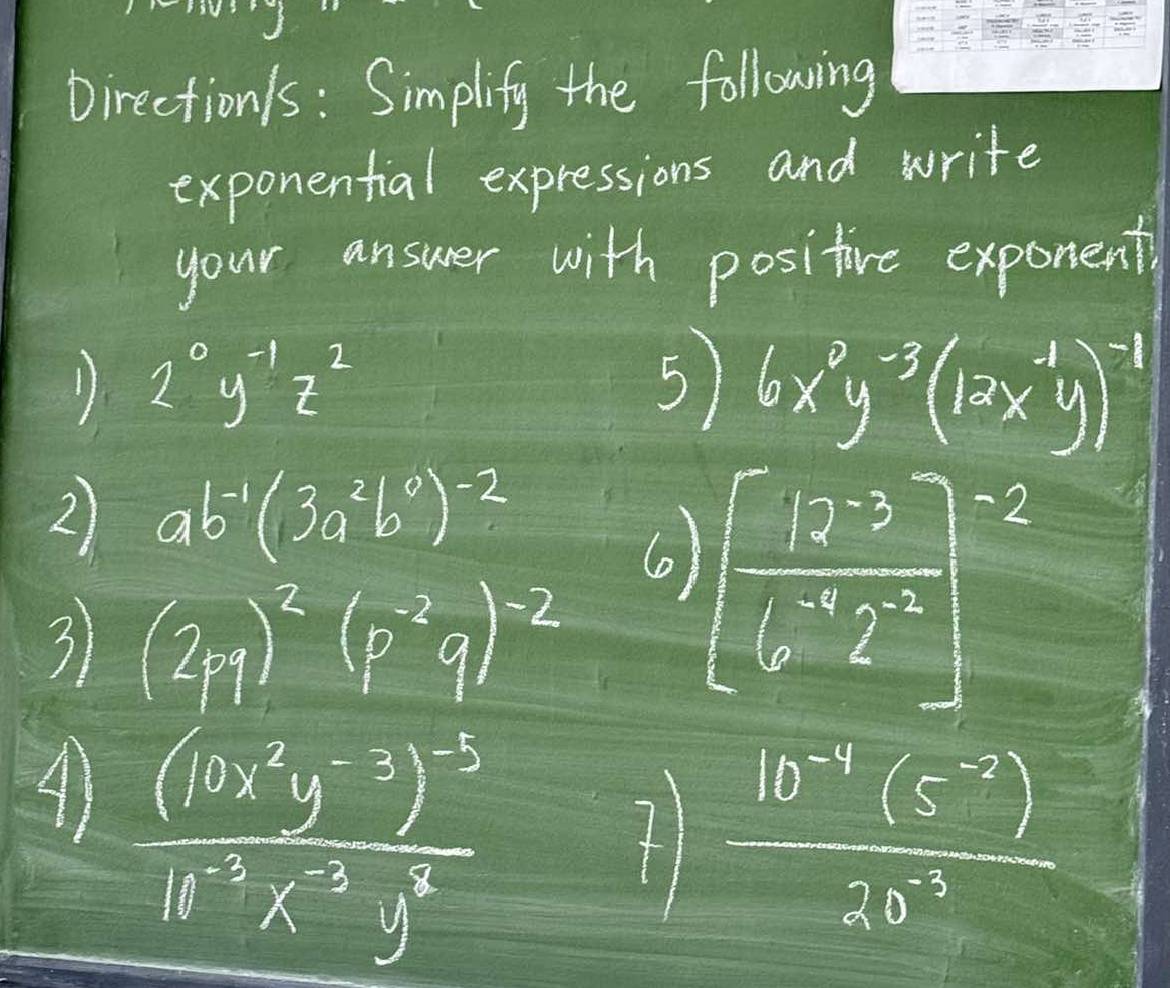 Direction/s: Simplify the following
exponential expressions and write
your answer with positive exponent
1) 2⁰ y⁻¹ z²
2) ab⁻¹(3a²b⁰)⁻²
3) (2pq)² (p⁻²q)⁻²
4) (10x²y⁻³)⁻⁵
10⁻³ x⁻³ y⁸
5) 6x⁰y⁻³(12x⁻¹y)⁻¹
6) [12⁻³
6⁻⁴ 2⁻²]⁻²
7) 10⁻⁴ (5⁻²)
20⁻³